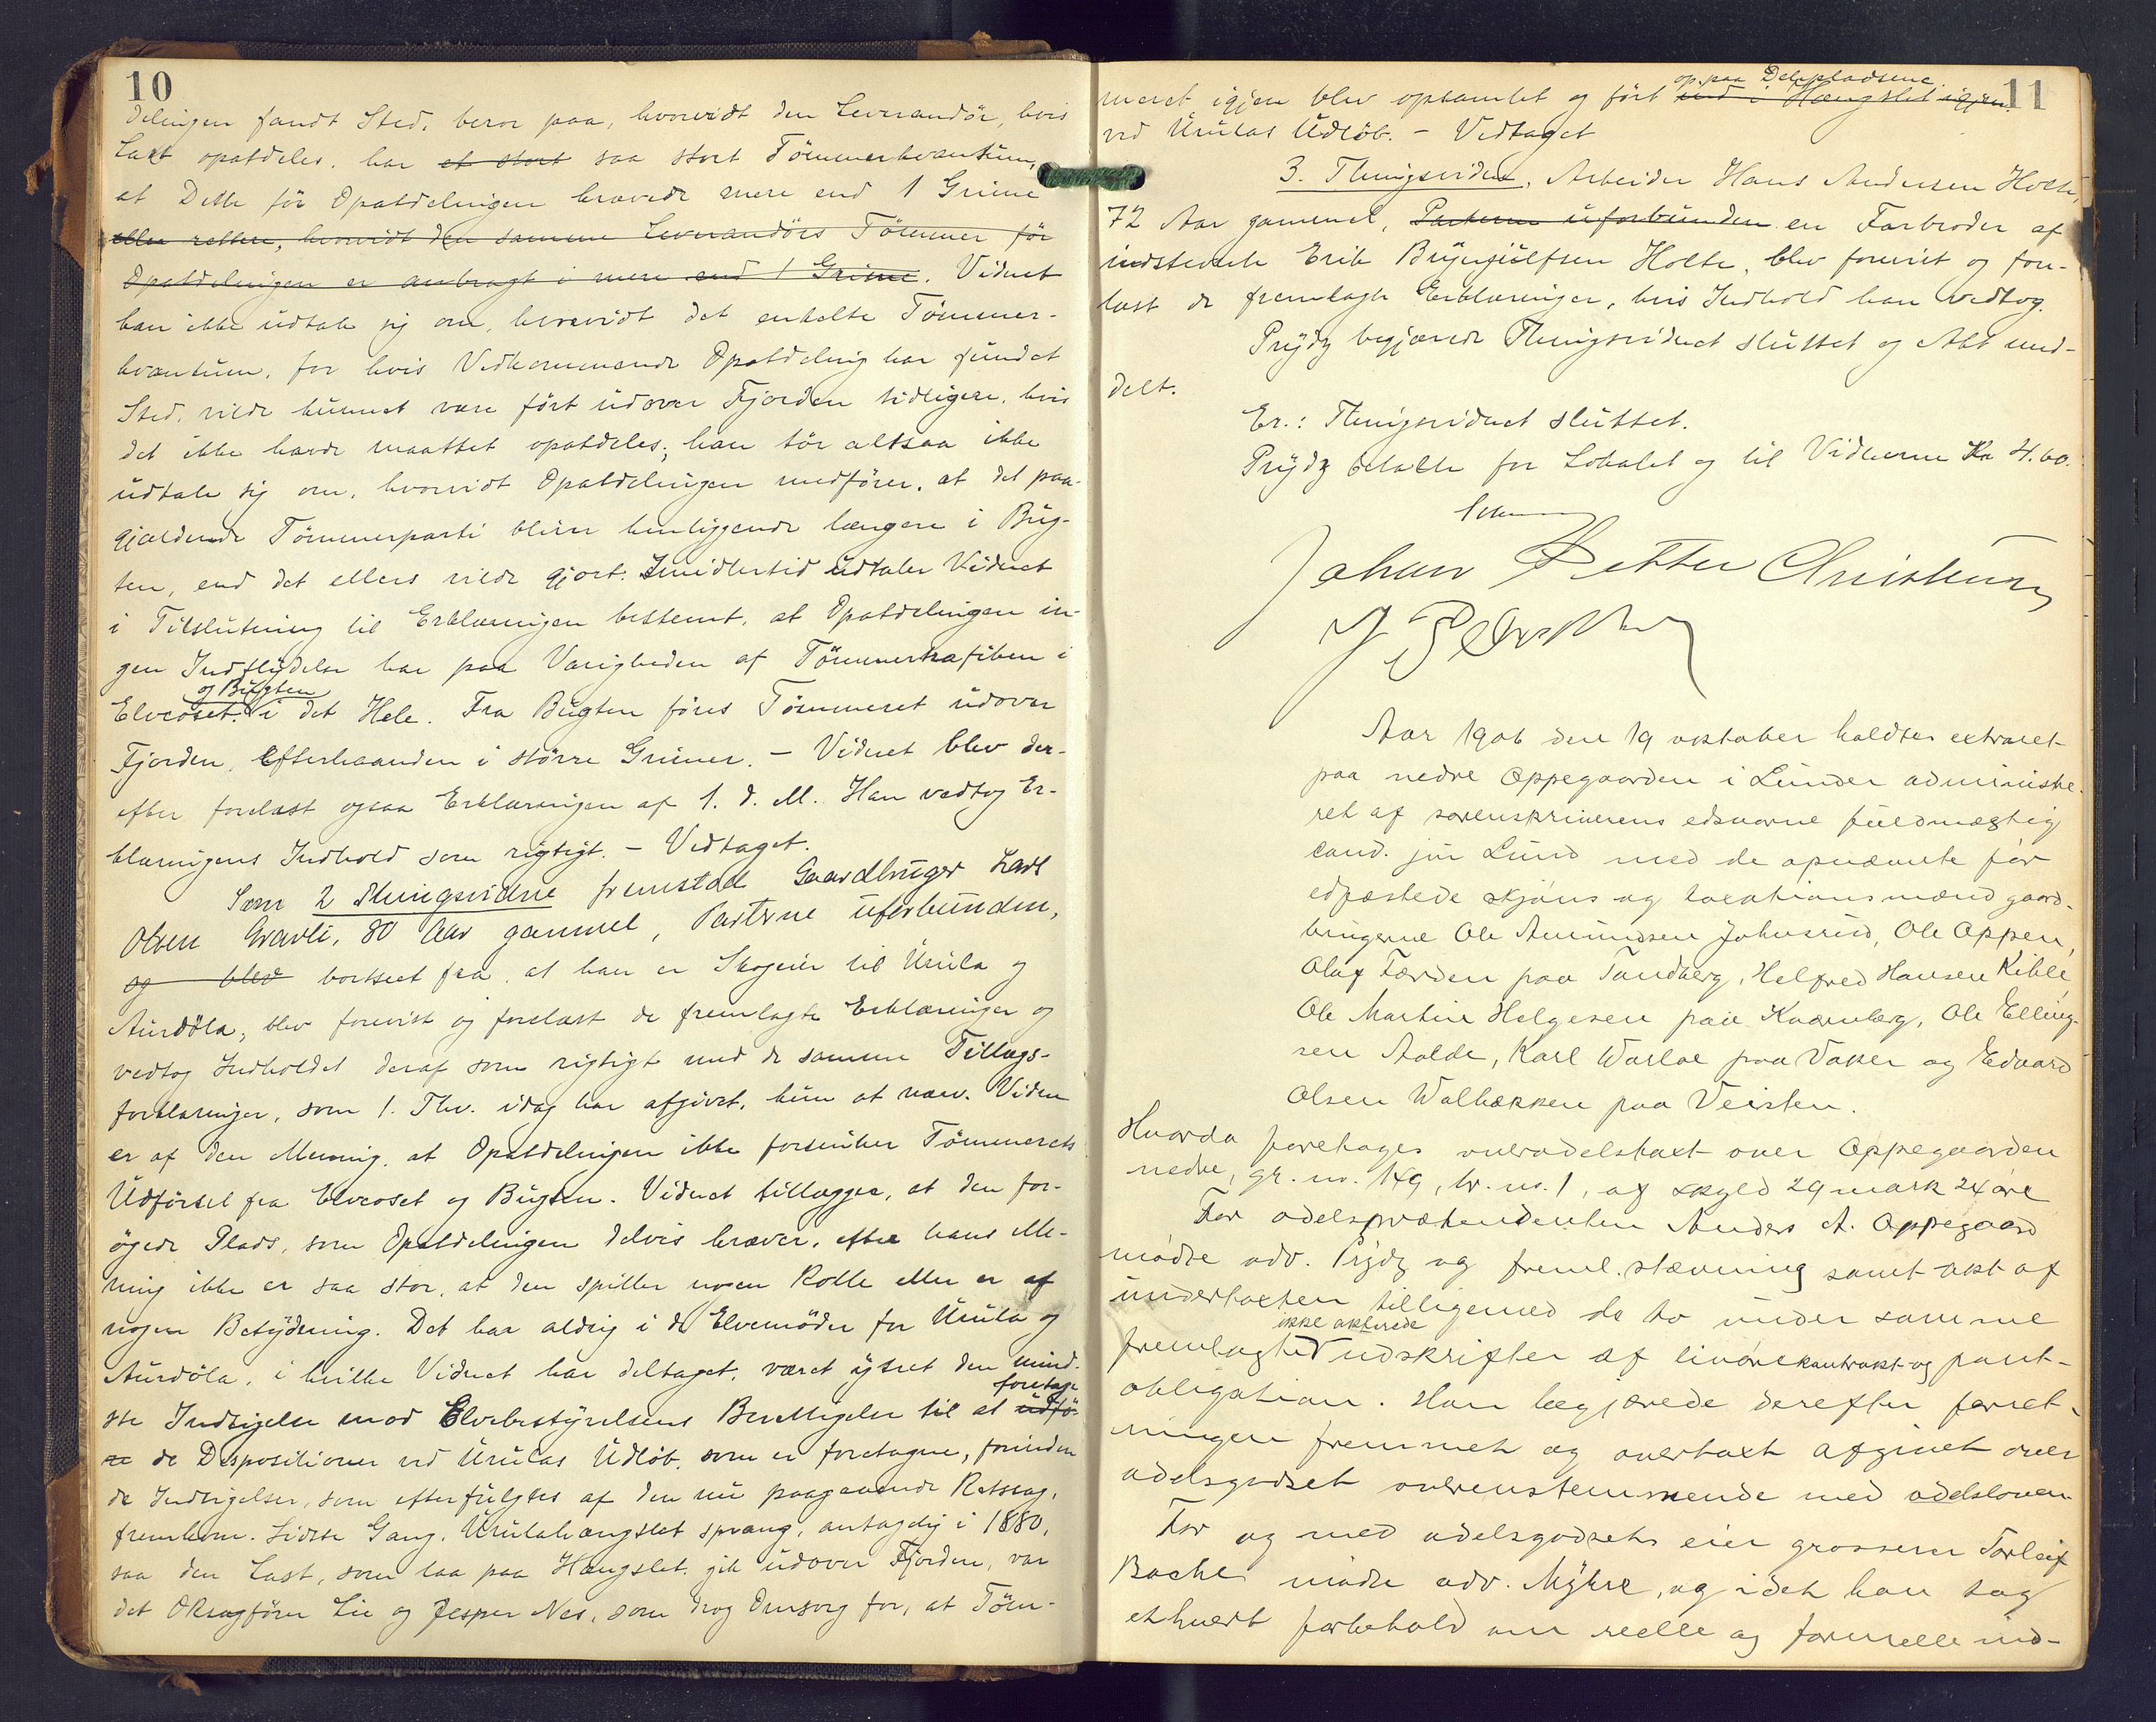 10
delingen fandt Sted, beror paa, hvorvidt den Leverandör, hvis
Last opatdeles, har et stort saa stort Tömmerkvantum,
at Dette för Opatdelingen krævede mere end 1 Grime
eller rettere, hvorvidt den samme Leverandörs Tömmer för
Opatdelingen er anbragt i mere end 1 Grime. Vidnet
kan ikke udtale sig om, hvorvidt det enkelte Tömmer-
kvantum, for hvis Vedkommende Opatdeling har fundet
Sted, vilde kunnet være fört udover Fjorden tidligere, hvis
det ikke havde maattet opatdeles; han tör altsaa ikke
udtale sig om, hvorvidt Opatdelingen medförer, at det paa-
gjældende Tömmerparti bliver henliggende længere i Bug-
ten, end det ellers vilde gjort. Imidlertid udtaler Vidnet
i Tilslutning til Erklæringen bestemt, at Opatdelingen in-
gen Indflydelse har paa Varigheden af Tömmertrafiken i
Elveoset og Bugten i det Hele. Fra Bugten föres Tömmeret udover
Fjorden, efterhaanden i större Grimer. – Vidnet blev der-
efter forelæst ogsaa Erklæringen af 1. d. M. Han vedtog Er-
klæringens Indhold som rigtigt. – Vedtaget.
Som 2 thingsvidne fremstod Gaardbruger Lars
Olsen Gravli, 80 Aar gammel, Parterne uforbunden,
og blev bortseet fra, at han er Skogeier til Urula og
Aurdöla, blev forevist og forelæst de fremlagte Erklæringer og
vedtog Indholdet deraf som rigtigt med de samme Tillægs-
forklaringer, som 1. Thv. idag har afgivet, kun at nærv. Vidne
er af den Mening, at Opatdelingen ikke forsinker Tömmerets
Udförsel fra Elveoset og Bugten. Vidnet tillægger, at den for-
ögede Plads, som Opatdelingen delvis kræver, efter hans Me-
ning ikke er saa stor, at den spiller nogen Rolle eller er af
nogen Betydning. Det har aldrig i de Elvemöder for Urula og
Aurdöla, i hvilke Vidnet har deltaget, været ytret den mind-
ste Indsigelse mod Elvebestyrelsens Berettigelse til at udfö- foretage
re de Dispositioner ved Urulas Udlöb, som er foretagne, forinden
de Indsigelser, som efterfulgtes af den nu paagaaende Retssag,
fremkom. Sidste Gang, Urulahængslet sprang, antagelig i 1880,
saa den Last, som laa paa Hængslet, gik udover Fjorden, var
det Oksagförer Lie og Jesper Nes, som drog Omsorg for, at Töm-
11
meret igjen blev opsamlet og fört ind i Hængslet igjen op paa Delepladsene
ved Urulas Udlöb. – Vedtaget
3. Thingsvidne, Arbeider Hans Andersen Holte,
72 Aar gammel, Parterne uforbunden en Farbroder af
indstevnte Erik Brynjulfsen Holte, blev forevist og fore-
læst de fremlagte Erklæringer, hvis Indhold han vedtog.
Prydz begjærede Thingsvidnet sluttet og Akt med-
delt.
Er.: Thingsvidnet sluttet.
Prydz betalte for Lokalet og til Vidnerne Kr 4.60.
Johan Petter Christensen
Aar 1906 den 19 oktober holdtes extraret
paa nedre Oppegaarden i Lunder administre-
ret af sorenskriverens edsvorne fuldmægtig
cand. jur Lund med de opnævnte før
edfæstede skjøns og taxationsmænd gaard-
brugerne Ole Amundsen Johnsrud, Ole Oppen,
Olaf Færden paa Tandberg, Helfred Hansen Kihle,
Ole Martin Helgesen paa Kværnberg, Ole Elling-
sen Aalde, Karl Warloe paa Vaker og Edvard
Olsen Wolbækken paa Veisten.
Hvorda foretoges overodelstaxt over Oppegaarden
nedre, gr. no. 149, br. no. 1, af skyld 29 mark 24 øre
For odelsprætendenten Anders A. Oppegaard
mødte adv. Prydz og freml. stævning samt akt af
undertaxten tilligemed de to under samme
fremlagte ikke akterede udskrifter af livørekontrakt og pant-
obligation. Han begjærede derefter forret-
ningen fremmet og overtaxt afgivet over
odelsgodset overensstemmende med odelsloven.
For og med odelsgodsets eier grosserer Torleif
Bache mødte adv. Myhre, og idet han tog
ethvert forbehold om reelle og formelle ind-